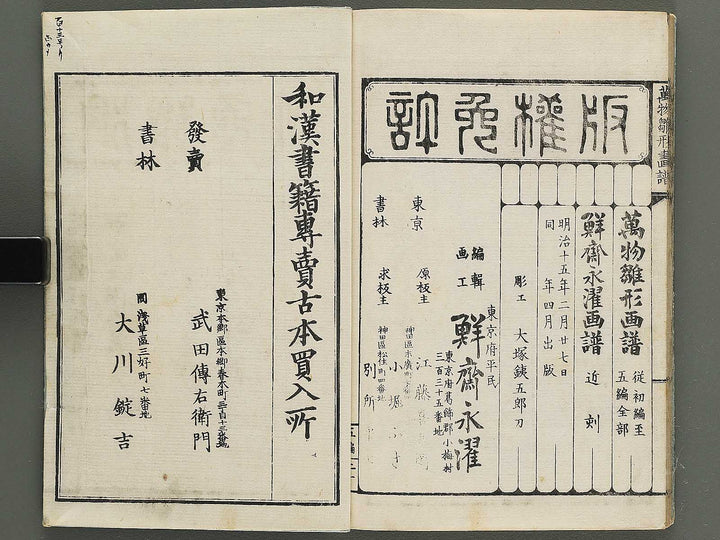 萬物雛形畫譜
版權免許
萬物雛形画譜
從初編至
五編全部
鮮齋永濯画譜 近刻
明治十五年二月廿七日
同 年四月出版
彫工 大塚銕五郎刀
東京府平民
編輯
画工
鮮齋永濯
東京府葛飾郡小梅村
三百三十五番地
東京 原板主
神田區末廣町
江藤
小堀
書林 求板主
神田區松住町四番地
別所
和漢書籍專賣古本買入所
發賣
書林
東京本郷區本郷春木町三百十三番地
武田傳右衛門
同 浅草區三好町七番地
大川錠吉